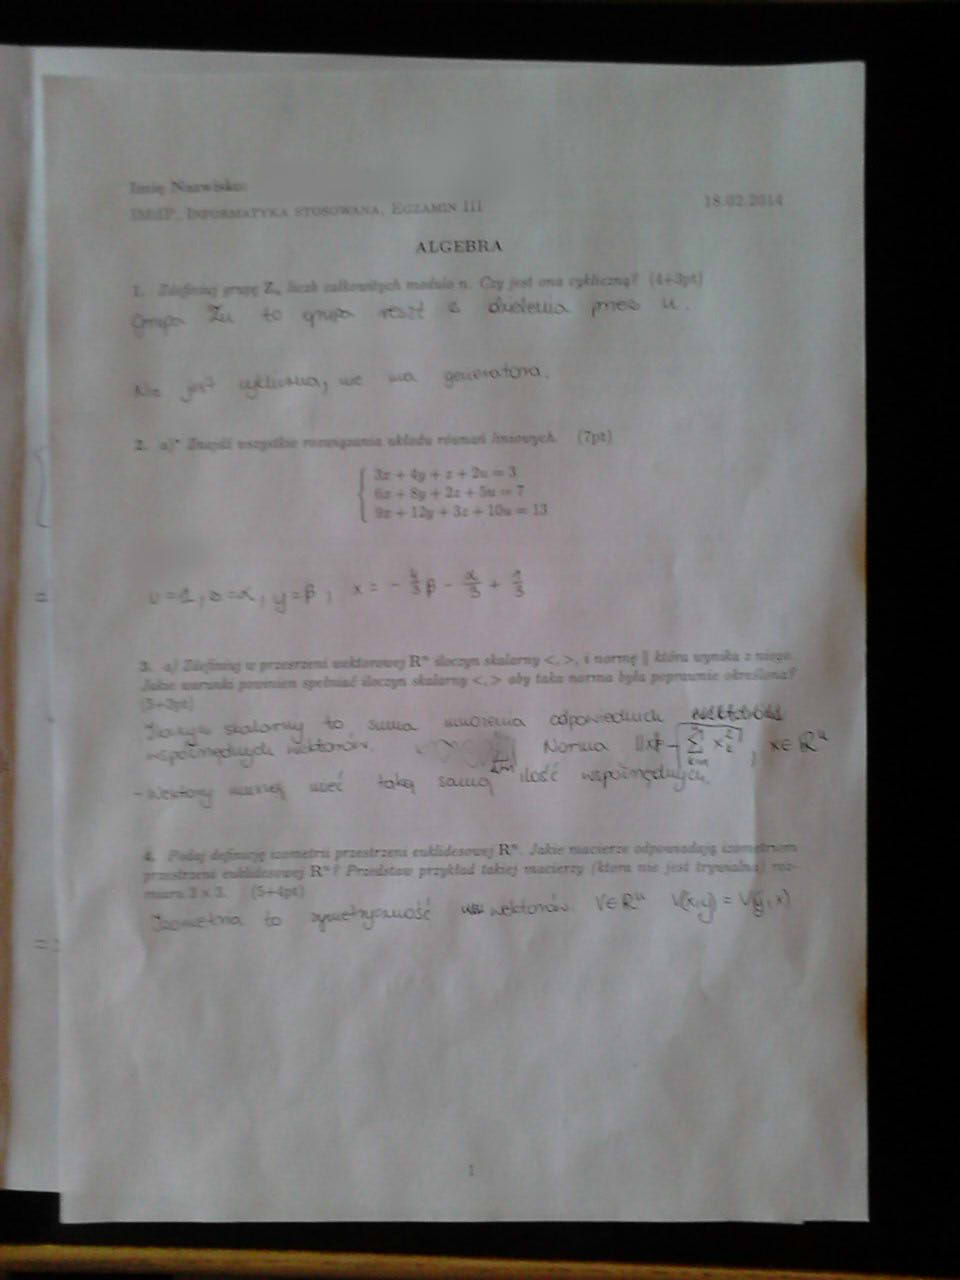 Imię Nazwisko:
IMiIP, Informatyka stosowana, Egzamin III 18.02.2014
ALGEBRA
1. Zdefiniuj grupę Zₙ liczb całkowitych modulo n. Czy jest ona cykliczną? (4+3pt)
Grupa Zn to grupa reszt z dzielenia przez n.
Nie jest cykliczna, nie ma generatora.
2. a)* Znajdź wszystkie rozwiązania układu równań liniowych. (7pt)
3x + 4y + z + 2u = 3
6x + 8y + 2z + 5u = 7
9x + 12y + 3z + 10u = 13
u=1, z=α, y=β, x = -4/3 β - α/3 + 1/3
3. a) Zdefiniuj w przestrzeni wektorowej Rⁿ iloczyn skalarny <,>, i normę || która wynika z niego.
Jakie warunki powinien spełniać iloczyn skalarny <,> aby taka norma była poprawnie określona?
(5+3pt)
Iloczyn skalarny to suma mnożenia odpowiednich
współrzędnych wektorów. Norma ||x|| = √∑ x²ₖ, x∈Rⁿ
- Wektory muszą mieć taką samą ilość współrzędnych.
4. Podaj definicję izometrii przestrzeni euklidesowej Rⁿ. Jakie macierze odpowiadają izometriom
przestrzeni euklidesowej Rⁿ? Przedstaw przykład takiej macierzy (która nie jest trywialna) roz-
miaru 3 x 3. (5+4pt)
Izometria to symetryczność wektorów V∈Rⁿ V(x,y) = V(y,x)
1